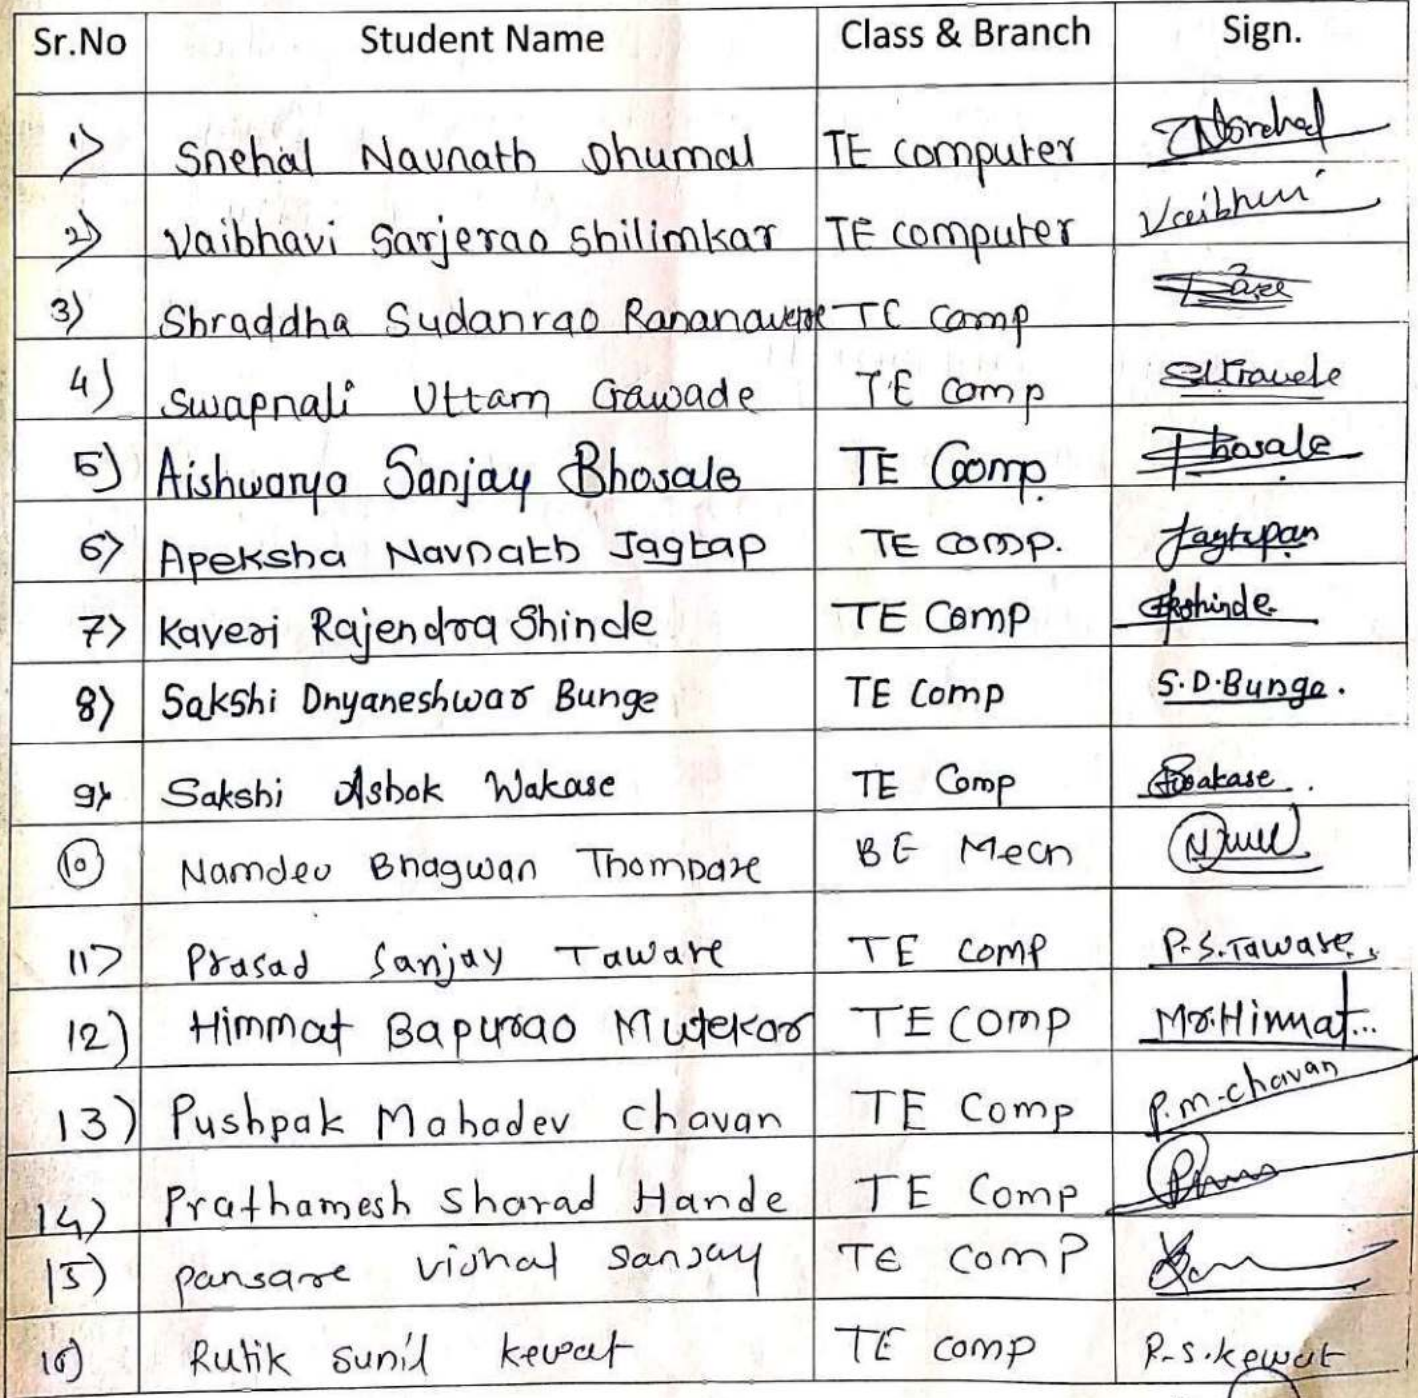 Sr.No Student Name Class & Branch Sign.
1) Snehal Navnath Dhumal TE computer
2) Vaibhavi Sarjerao Shilimkar TE computer Vaibhavi
3) Shraddha Sudanrao Rananavare TE comp
4) Swapnali Uttam Gawade TE comp
5) Aishwarya Sanjay Bhosale TE Comp. Bhosale
6) Apeksha Navnath Jagtap TE comp.
7) Kaveri Rajendra Shinde TE Comp
8) Sakshi Dnyaneshwar Bunge TE Comp S.D.Bunge.
9) Sakshi Ashok Wakase TE Comp
10 Namdev Bhagwan Thombare BE Mech
11) Prasad Sanjay Taware TE comp P.S.Taware.
12) Himmat Bapurao Mutekar TE COMP Mr.Himmat...
13) Pushpak Mahadev Chavan TE Comp P.M.chavan
14) Prathamesh Sharad Hande TE Comp
15) pansare vishal sanjay TE comp
16) Rutik sunil kewat TE comp R.S.kewat